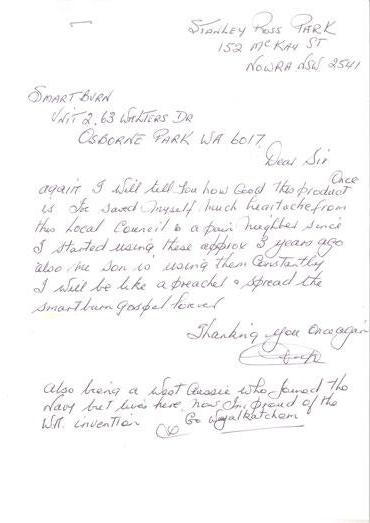 STANLEY ROSS PARK
152 McKAY ST
NOWRA NSW 2541
SMARTBURN
UNIT 2, 63 WALTERS DR
OSBORNE PARK WA 6017
Dear Sir
Once
again I will tell you how Good this product
is I've saved myself much heartache from
this Local Council & a pain neighbor since
I started using these approx 3 years ago
also me son is using them Constantly
I will be like a preacher & spread the
smartburn gospel forever
Thanking you once again
also being a West Aussie who joined the
Navy but lives here now I'm proud of the
WA. invention Go Wyalkatchem